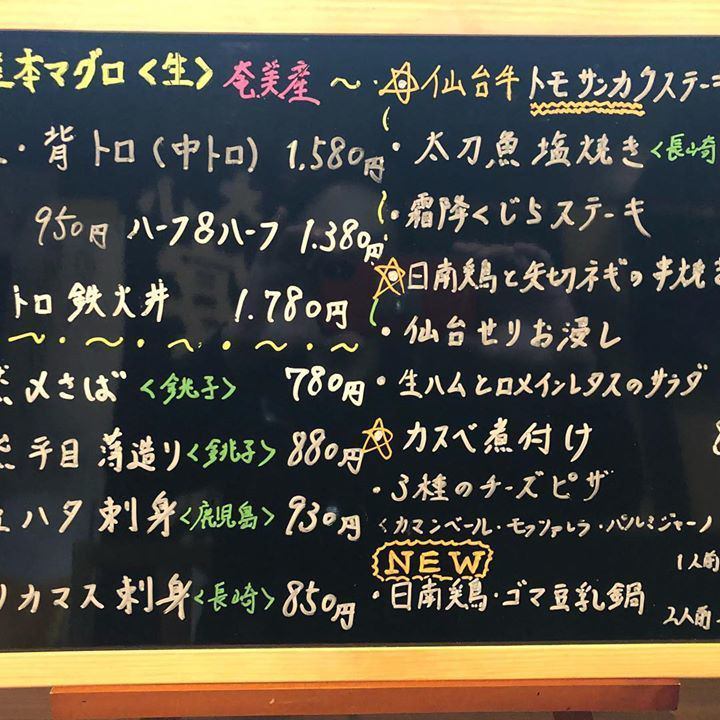 本マグロ〈生〉奄美産 〜
・背トロ(中トロ) 1.580円
950円 ハーフ&ハーフ 1.380円
トロ鉄火丼 1.780円
〆さば〈銚子〉 780円
平目薄造り〈銚子〉 880円
ハタ刺身〈鹿児島〉 930円
カマス刺身〈長崎〉 850円
・☆仙台牛トモサンカクステーキ
・太刀魚塩焼き〈長崎
・霜降くじらステーキ
☆日南鶏と矢切ネギの串焼き
・仙台せりお浸し
・生ハムとロメインレタスのサラダ
☆カスベ煮付け
・3種のチーズピザ
〈カマンベール・モッツァレラ・パルミジャーノ
NEW
1人前
・日南鶏・ゴマ豆乳鍋
2人前